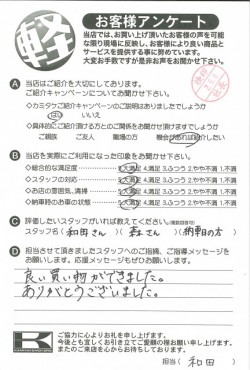 軽
お客様アンケート
当店では、お買い上げ頂いたお客様の声を可能
な限り現場に反映し、お客様により良い商品と
サービスを提供する事に努めています。
大変お手数ですが是非お声をお聞かせ下さい。
A 当店はご紹介を大切にしております。
ご紹介キャンペーンについてお聞かせ下さい。
◇カミタケご紹介キャンペーンのご説明はありましたでしょうか
はい いいえ
◇具体的にご紹介頂ける方とのご関係をお聞かせ頂けますでしょうか
ご親族 ご友人 職場の方 機会があれば紹介したい
B 当店を実際にご利用になった印象をお聞かせ下さい。
◇総合的な満足度 5.大満足 4.満足 3.ふつう 2.やや不満 1.不満
◇スタッフの対応 5.大満足 4.満足 3.ふつう 2.やや不満 1.不満
◇お店の雰囲気、清掃 5.大満足 4.満足 3.ふつう 2.やや不満 1.不満
◇納車時のお車の状態 5.大満足 4.満足 3.ふつう 2.やや不満 1.不満
C 評価したいスタッフがいれば教えてください。(複数回答可)
スタッフ名( 和田さん )( 森さん )( 納車時の方 )
D 担当させて頂きましたスタッフへのご指摘、ご指導メッセージを
お願いします。応援メッセージもぜひお願いします。
良い買い物ができました。
ありがとうございました。
K
ご協力に心よりお礼を申し上げます。
今後とも宜しくお引き立てご愛顧の程お願い申し上げます。
またのご来店を心からお待ちしております。
担当( 和田 )